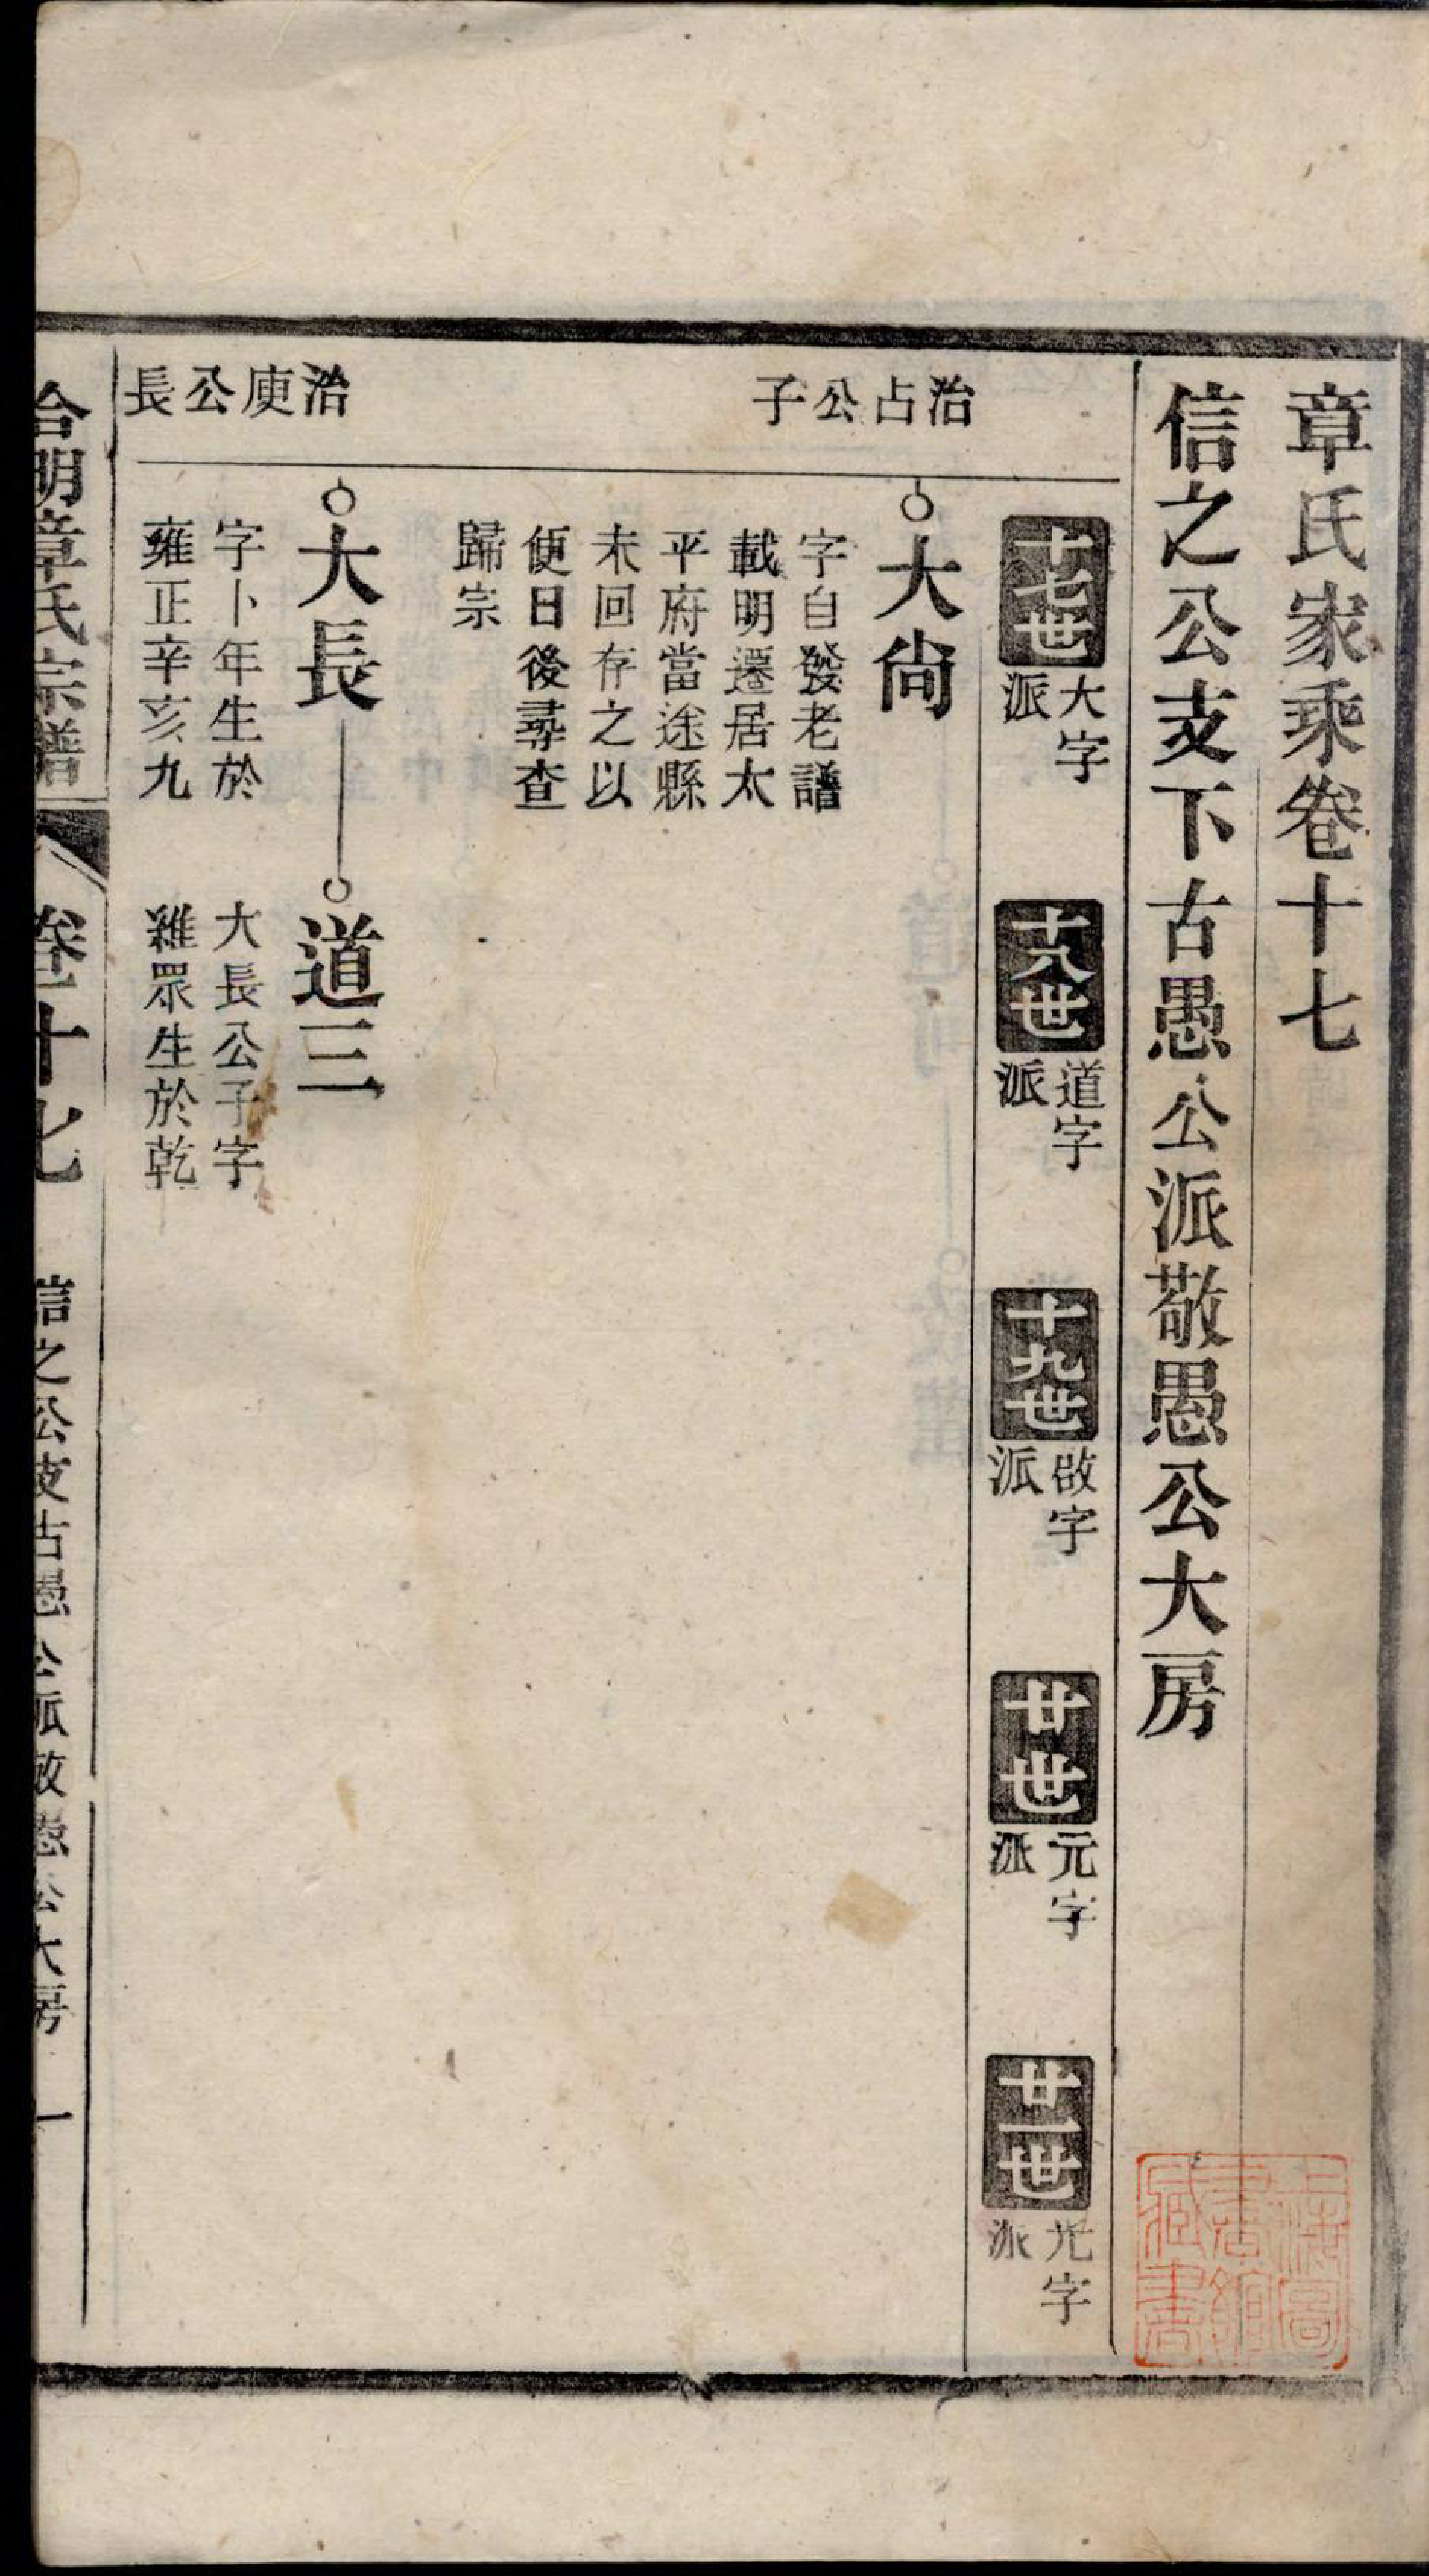 章氏家乘卷十七
信之公支下古愚公派敬愚公大房
十七世
大字
派
十八世
道字
派
十九世
啟字
派
廿世
元字
派
廿一世
光字
派
治占公子
大尙
字自發老譜
載明遷居太
平府當途縣
未回存之以
便日後尋查
歸宗
治庾公長
大長
字卜年生於
雍正辛亥九
道三
大長公子字
雜眾生於乾
合明章氏宗譜
卷十七
信之公支古愚公派敬愚公大房
一
上海圖書館藏書